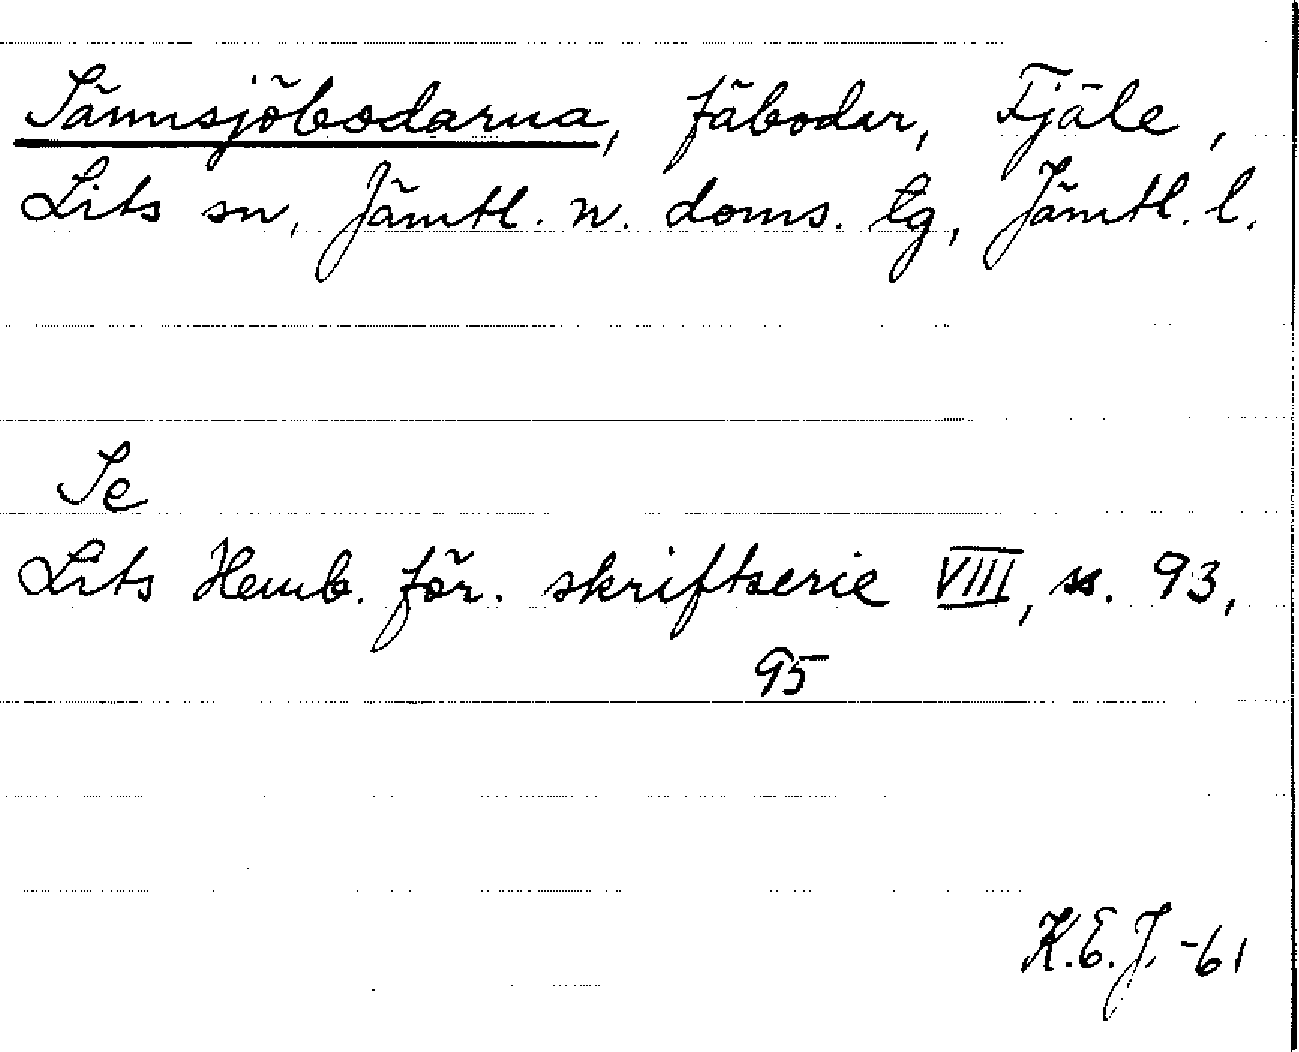 Sännsjöbodarna, fäbodar, Fjäle,
Lits sn, Jämtl. n. doms. lg, Jämtl. l.
Se
Lits Hemb. för. skriftserie VIII, ss. 93,
95
K.E.J. -61